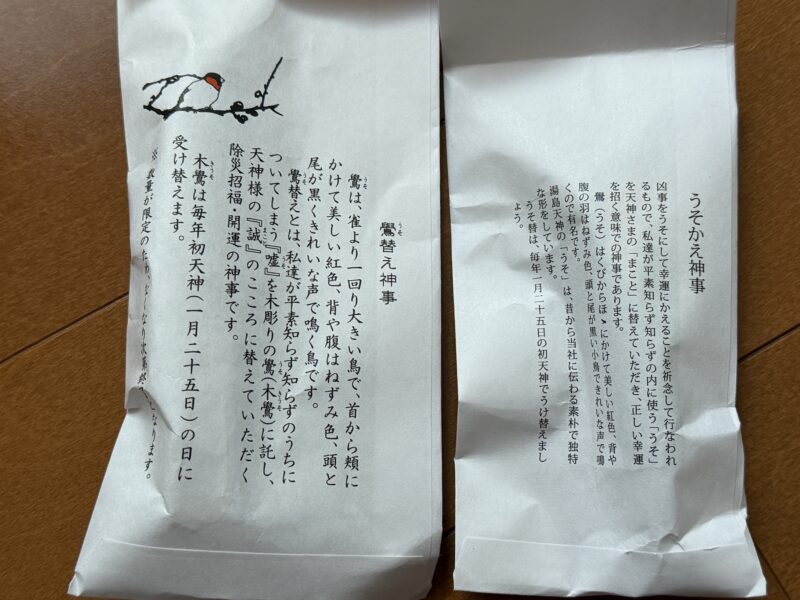 鷽替え神事
鷽は、雀より一回り大きい鳥で、首から頬に
かけて美しい紅色、背や腹はねずみ色、頭と
尾が黒くきれいな声で鳴く鳥です。
鷽替えとは、私達が平素知らず知らずのうちに
ついてしまう『嘘』を木彫りの鷽(木鷽)に託し、
天神様の『誠』のこころに替えていただく
除災招福 開運の神事です。
木鷽は毎年初天神(一月二十五日)の日に
受け替えます。
※ 数量が限定のため、なくなり次第終了となります。
うそかえ神事
凶事をうそにして幸運にかえることを祈念して行なわれ
るもので、私達が平素知らず知らずの内に使う「うそ」
を天神さまの「まこと」に替えていただき、正しい幸運
を招く意味での神事であります。
鷽(うそ)はくびからほゝにかけて美しい紅色、背や
腹の羽はねずみ色、頭と尾が黒い小鳥できれいな声で鳴
くので有名です。
湯島天神の「うそ」は、昔から当社に伝わる素朴で独特
な形をしています。
うそ替は、毎年一月二十五日の初天神でうけ替えまし
ょう。